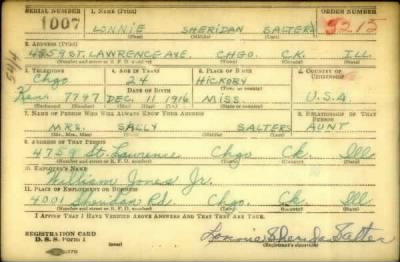 SERIAL NUMBER 1. NAME (Print) ORDER NUMBER
1007 LONNIE SHERIDAN SALTERS 3215
(First) (Middle) (Last)
2. ADDRESS (Print)
4759 ST. LAWRENCE AVE. CHGO. CK. ILL.
(Number and street or R. F. D. number) (Town) (County) (State)
3. TELEPHONE 4. AGE IN YEARS 5. PLACE OF BIRTH 6. COUNTRY OF CITIZENSHIP
Chgo 24 HICKORY
DATE OF BIRTH (Town or county)
Ken 7797 DEC. 11 1916 MISS. U.S.A.
(Exchange) (Number) (Mo.) (Day) (Yr.) (State or country)
7. NAME OF PERSON WHO WILL ALWAYS KNOW YOUR ADDRESS 8. RELATIONSHIP OF THAT PERSON
MRS. SALLY SALTERS AUNT
(Mr., Mrs., Miss) (First) (Middle) (Last)
9. ADDRESS OF THAT PERSON
4759 St. Lawrence Chgo Ck. Ill
(Number and street or R. F. D. number) (Town) (County) (State)
10. EMPLOYER'S NAME
William Jones Jr.
11. PLACE OF EMPLOYMENT OR BUSINESS
4001 Sheridan Rd. Chgo. Ck. Ill
(Number and street or R. F. D. number) (Town) (County) (State)
I AFFIRM THAT I HAVE VERIFIED ABOVE ANSWERS AND THAT THEY ARE TRUE.
REGISTRATION CARD
D. S. S. Form 1 Lonnie Sheridan Salter
(Registrant's signature)